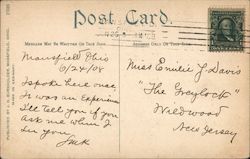 Post Card.
MESSAGE MAY BE WRITTEN ON THIS SIDE
ADDRESS ONLY ON THIS SIDE
Mansfield Ohio
6/24/08
I spoke here once,
It was an Experience
I'll tell you if you
ask me when I
see you.
Miss Emilie J Davis
"The Graylock"
Wildwood
New Jersey